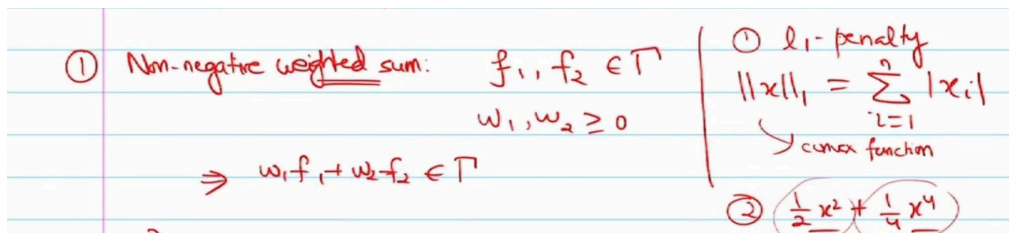 ① Non-negative weighted sum: f₁, f₂ ∈ Γ
w₁, w₂ ≥ 0
⇒ w₁f₁ + w₂f₂ ∈ Γ
① l₁-penalty
||x||₁ = Σⁿᵢ₌₁ |xᵢ|
↘ convex function
② ½ x² + ¼ x⁴